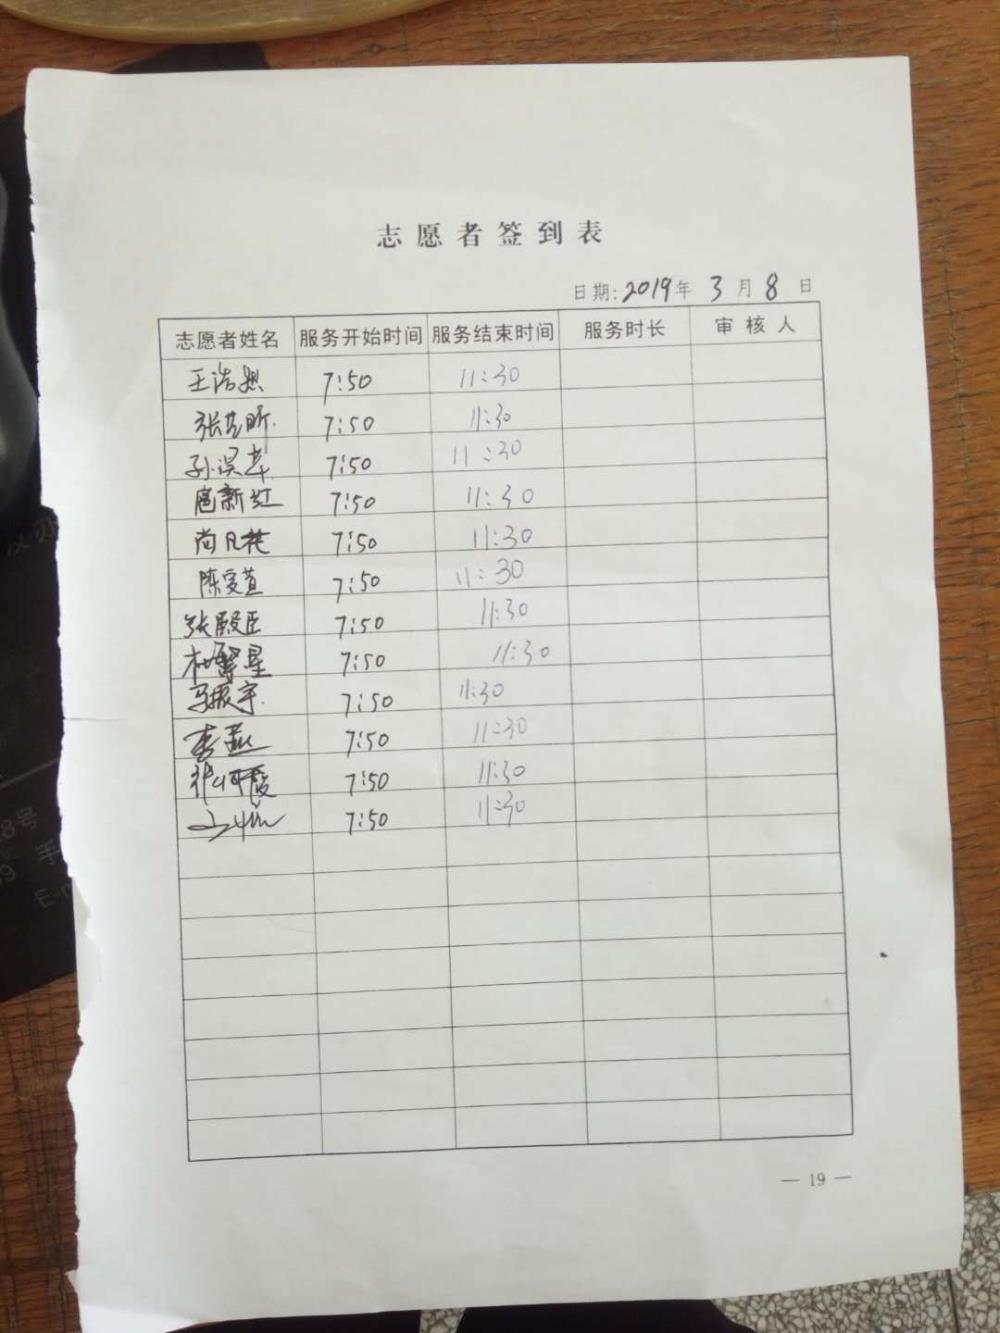 志愿者签到表
日期:2019年 3月 8日
志愿者姓名 服务开始时间 服务结束时间 服务时长 审核人
王浩然 7:50 11:30
张艺昕 7:50 11:30
孙 7:50 11:30
扈新红 7:50 11:30
尚凡 7:50 11:30
陈 7:50 11:30
张殿臣 7:50 11:30
星 7:50 11:30
马振宇 7:50 11:30
李燕 7:50 11:30
7:50 11:30
7:50 11:30
— 19 —
8号
手
E-m